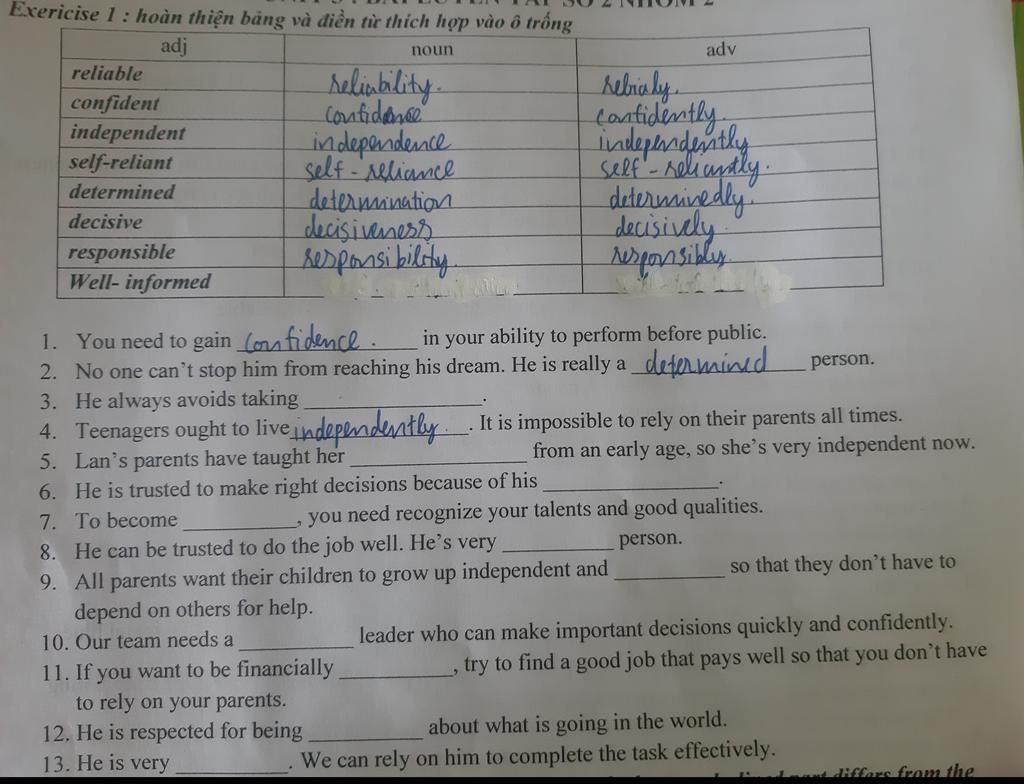 Exericise 1 : hoàn thiện bảng và điền từ thích hợp vào ô trống
adj noun adv
reliable reliability. rebialy.
confident confidence confidently.
independent independence independently
self-reliant self - reliance self - reliantly.
determined determination determinedly.
decisive decisiveness decisively.
responsible responsibility. responsibly.
Well- informed
1. You need to gain confidence. in your ability to perform before public.
2. No one can't stop him from reaching his dream. He is really a determined person.
3. He always avoids taking ____________.
4. Teenagers ought to live independently. It is impossible to rely on their parents all times.
5. Lan's parents have taught her ____________ from an early age, so she's very independent now.
6. He is trusted to make right decisions because of his ____________.
7. To become ____________, you need recognize your talents and good qualities.
8. He can be trusted to do the job well. He's very ____________ person.
9. All parents want their children to grow up independent and ____________ so that they don't have to
depend on others for help.
10. Our team needs a ____________ leader who can make important decisions quickly and confidently.
11. If you want to be financially ____________, try to find a good job that pays well so that you don't have
to rely on your parents.
12. He is respected for being ____________ about what is going in the world.
13. He is very ____________. We can rely on him to complete the task effectively.
part differs from the